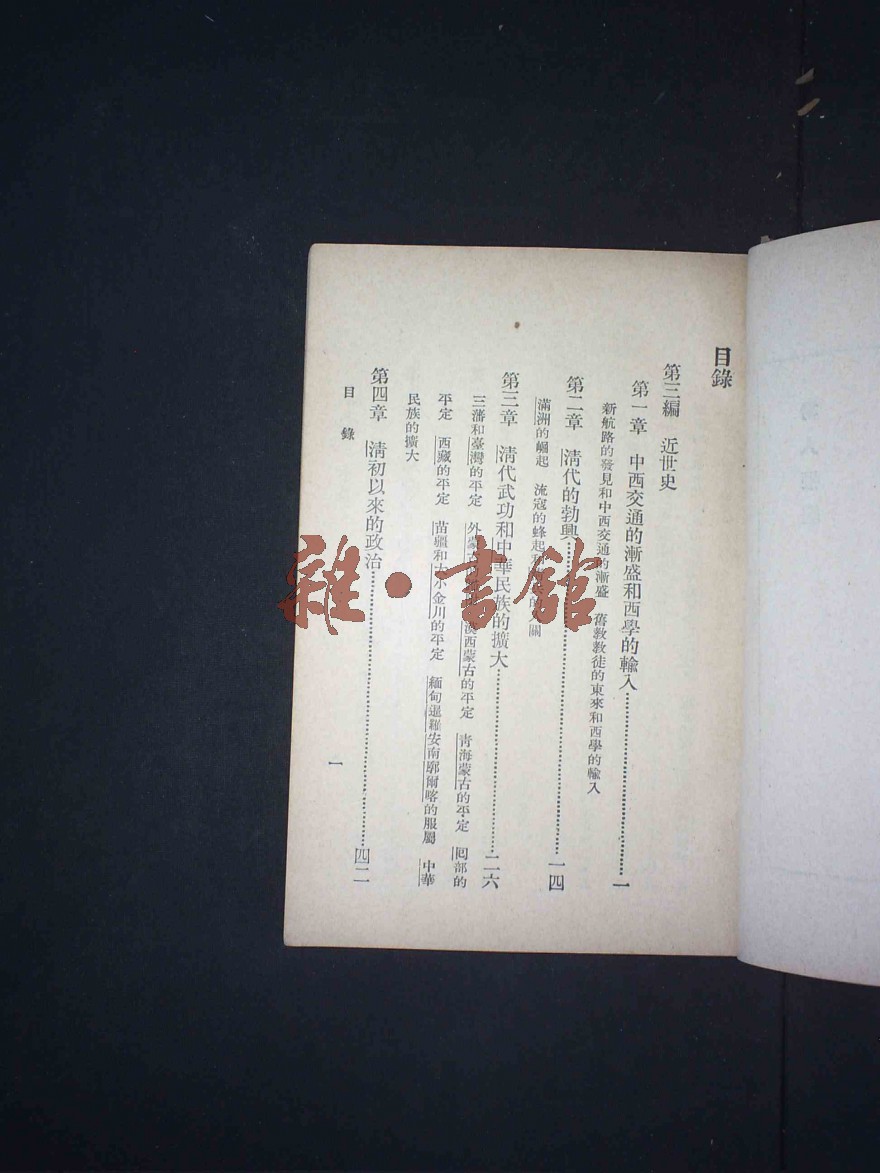 目錄
第三編 近世史
第一章 中西交通的漸盛和西學的輸入……一
新航路的發見和中西交通的漸盛 舊教教徒的東來和西學的輸入
第二章 清代的勃興……一四
滿洲的崛起 流寇的蜂起 關
第三章 清代武功和中華民族的擴大……二六
三藩和臺灣的平定 外蒙 漠西蒙古的平定 青海蒙古的平定 回部的
平定 西藏的平定 苗疆和大小金川的平定 緬甸暹羅安南郭爾喀的服屬 中華
民族的擴大
第四章 清初以來的政治……四二
目錄 一
雜·書館